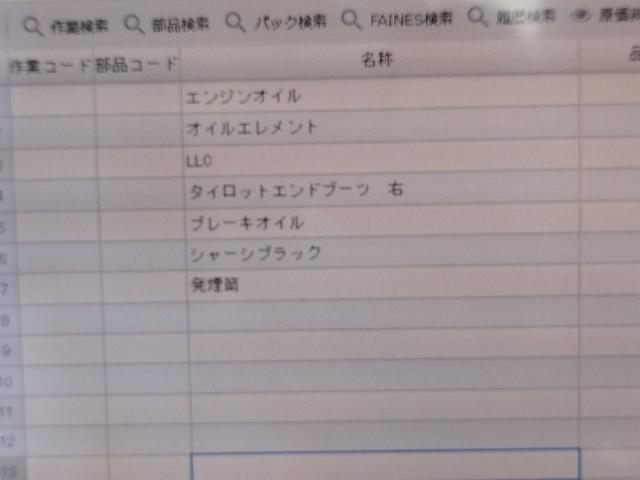 作業検索 部品検索 パック検索 FAINES検索 履歴検索 原価非
作業コード 部品コード 名称 品
エンジンオイル
オイルエレメント
LLC
タイロットエンドブーツ 右
ブレーキオイル
シャーシブラック
7 発煙筒
8
9
10
11
12
13